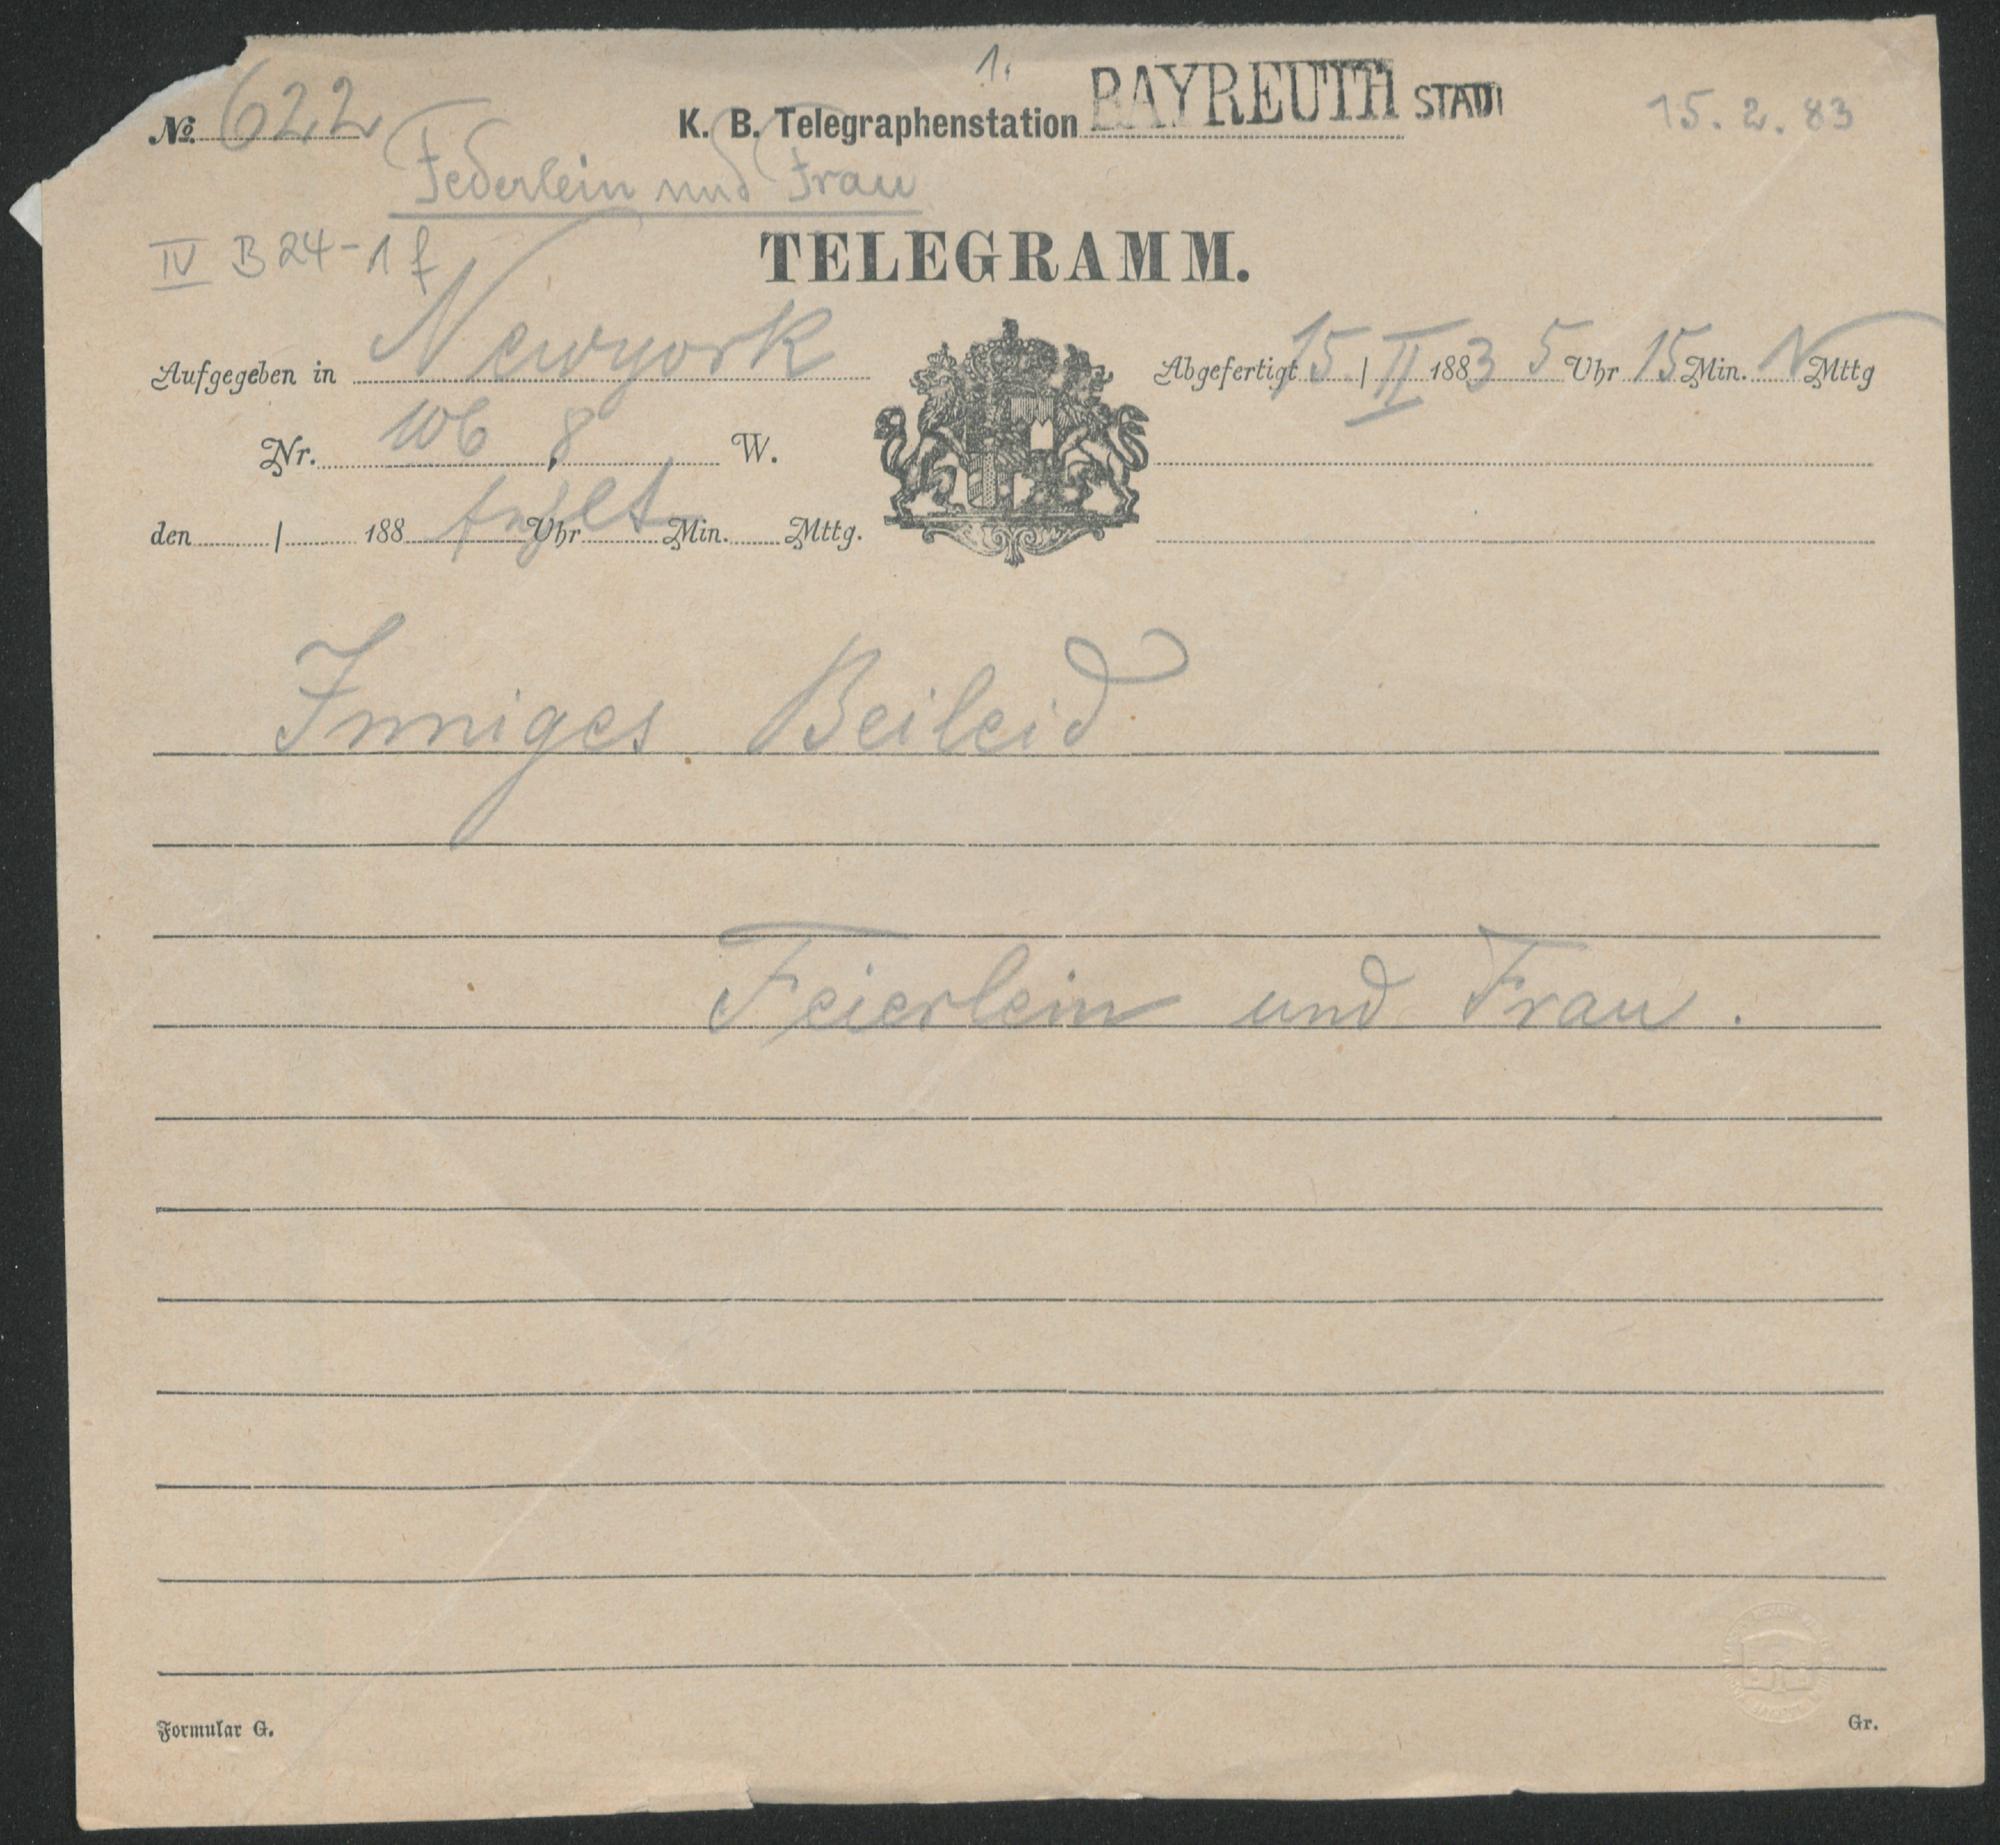 1.
No. 622 K. B. Telegraphenstation BAYREUTH STADT 15. 2. 83
Federlein und Frau
IV B 24-1 f
TELEGRAMM.
Aufgegeben in Newyork
Abgefertigt 15 / II 1883 5 Uhr 15 Min. N Mttg
Nr. 106, 8 W.
den / 188 fehlt Uhr Min. Mttg.
Inniges Beileid
Feierlein und Frau.
Formular G. Gr.